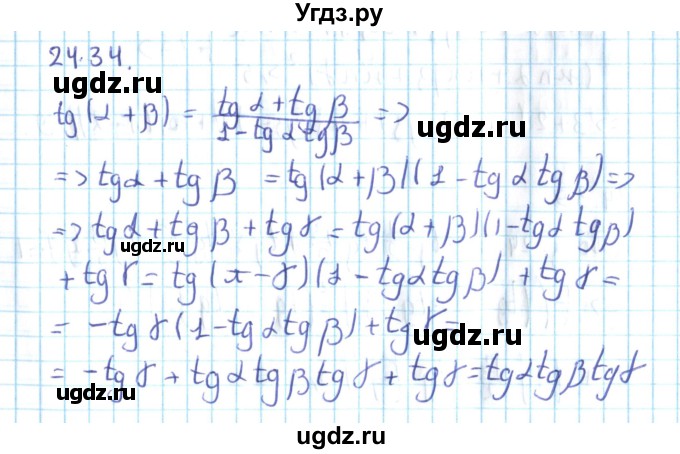 Угдз.ру
24.34.
ugdz.ru
tg(α+β) = (tg α + tg β)/(1 - tg α tg β) =>
ugdz.ru
=> tg α + tg β = tg(α+β)(1 - tg α tg β) =>
=> tg α + tg β + tg γ = tg(α+β)(1 - tg α tg β)
ugdz.ru
ugdz.ru
+ tg γ = tg(π-γ)(1 - tg α tg β) + tg γ =
= -tg γ(1 - tg α tg β) + tg γ =
ugdz.ru
= -tg γ + tg α tg β tg γ + tg γ = tg α tg β tg γ
ugdz.ru